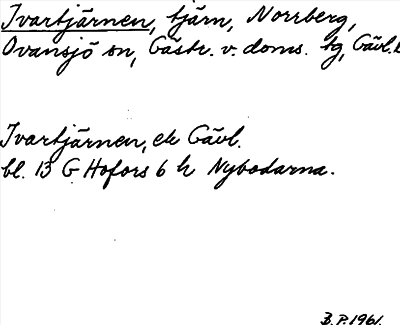 Ivartjärnen, tjärn, Norrberg,
Ovansjö sn, Gästr. v. doms. tg, Gävl.
Ivartjärnen, ek Gävl.
bl. 13 G Hofors 6 h Nybodarna.
B.P. 1961.